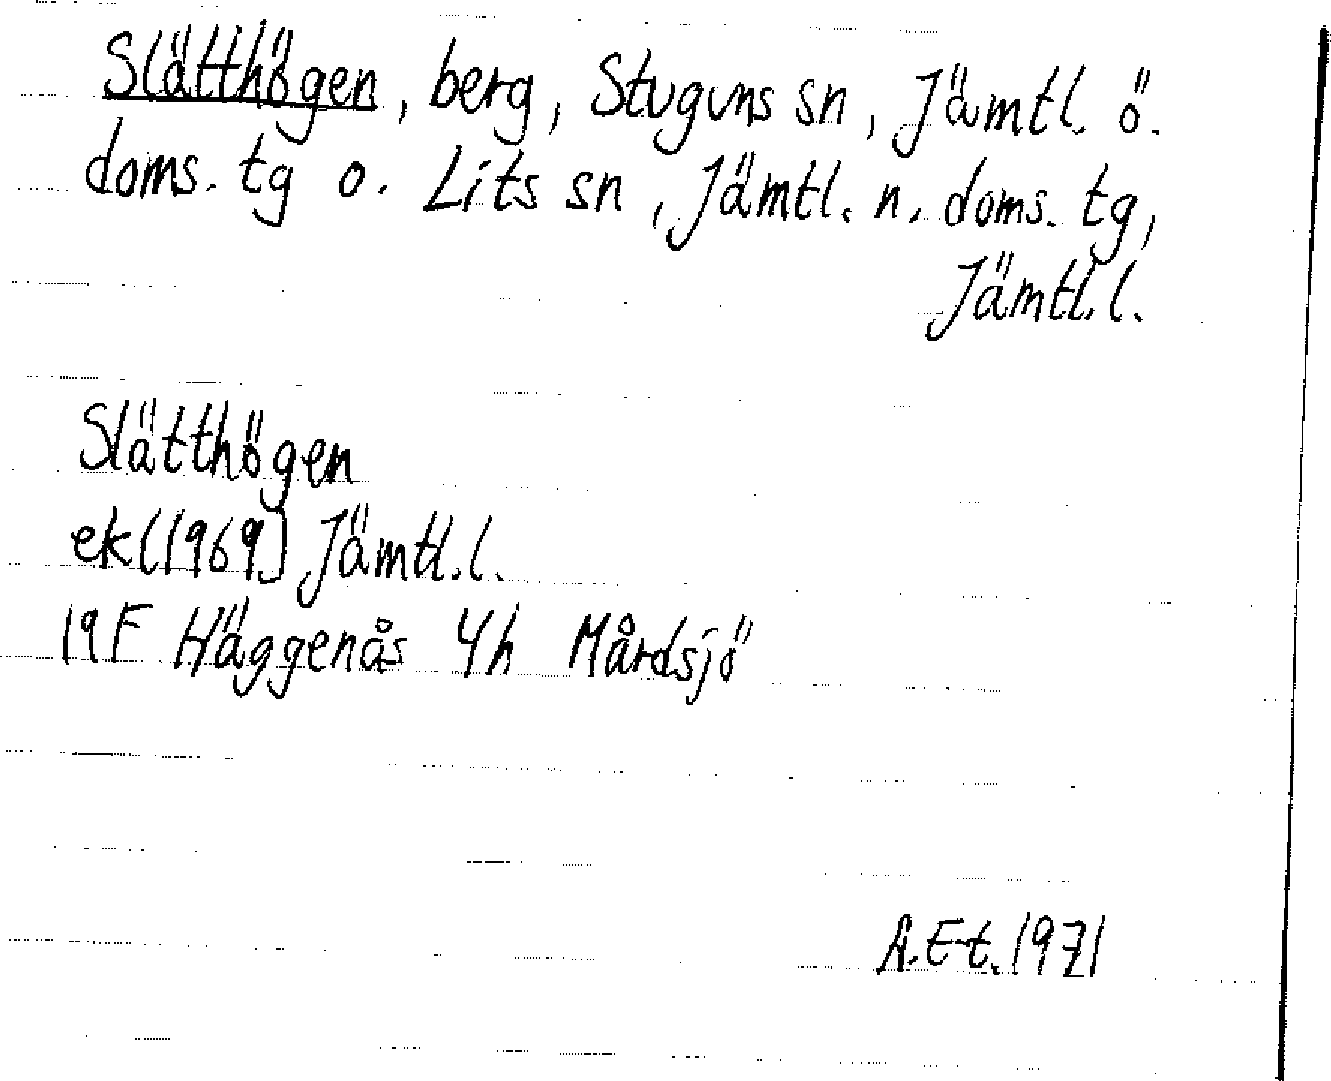 Slätthögen, berg, Stuguns sn, Jämtl. ö.
doms. tg o. Lits sn, Jämtl. n. doms. tg,
Jämtl. l.
Slätthögen
ek (1969) Jämtl. l.
19F Häggenås 4h Mårdsjö
A. E-t. 1971